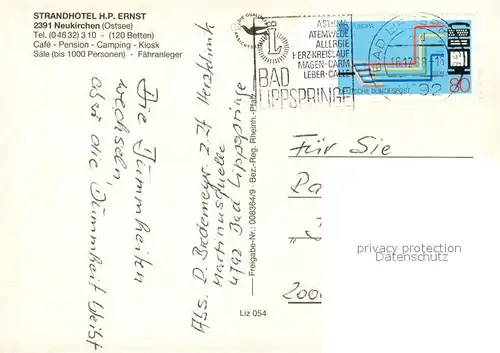 STRANDHOTEL H.P. ERNST
2391 Neukirchen (Ostsee)
Tel. (04632) 310 - (120 Betten)
Café - Pension - Camping - Kiosk
Säle (bis 1000 Personen) - Fähranleger
Die Dummheiten
wechseln,
aber die Dummheit bleibt
Abs. D. Bredemeyer z.Zt Herzklinik
Martinusquelle
4792 Bad Lippspringe
Freigabe-Nr. 008364/9 Bez.-Reg. Rheinh.-Pfalz
Liz 054
ASTHMA
ATEMWEGE
ALLERGIE
HERZ-KREISLAUF
MAGEN-DARM
LEBER-GALLE
L
BAD
LIPPSPRINGE
BAD
16.12.88
EUROPA
DEUTSCHE BUNDESPOST
80
Für Sie
privacy protection
Datenschutz